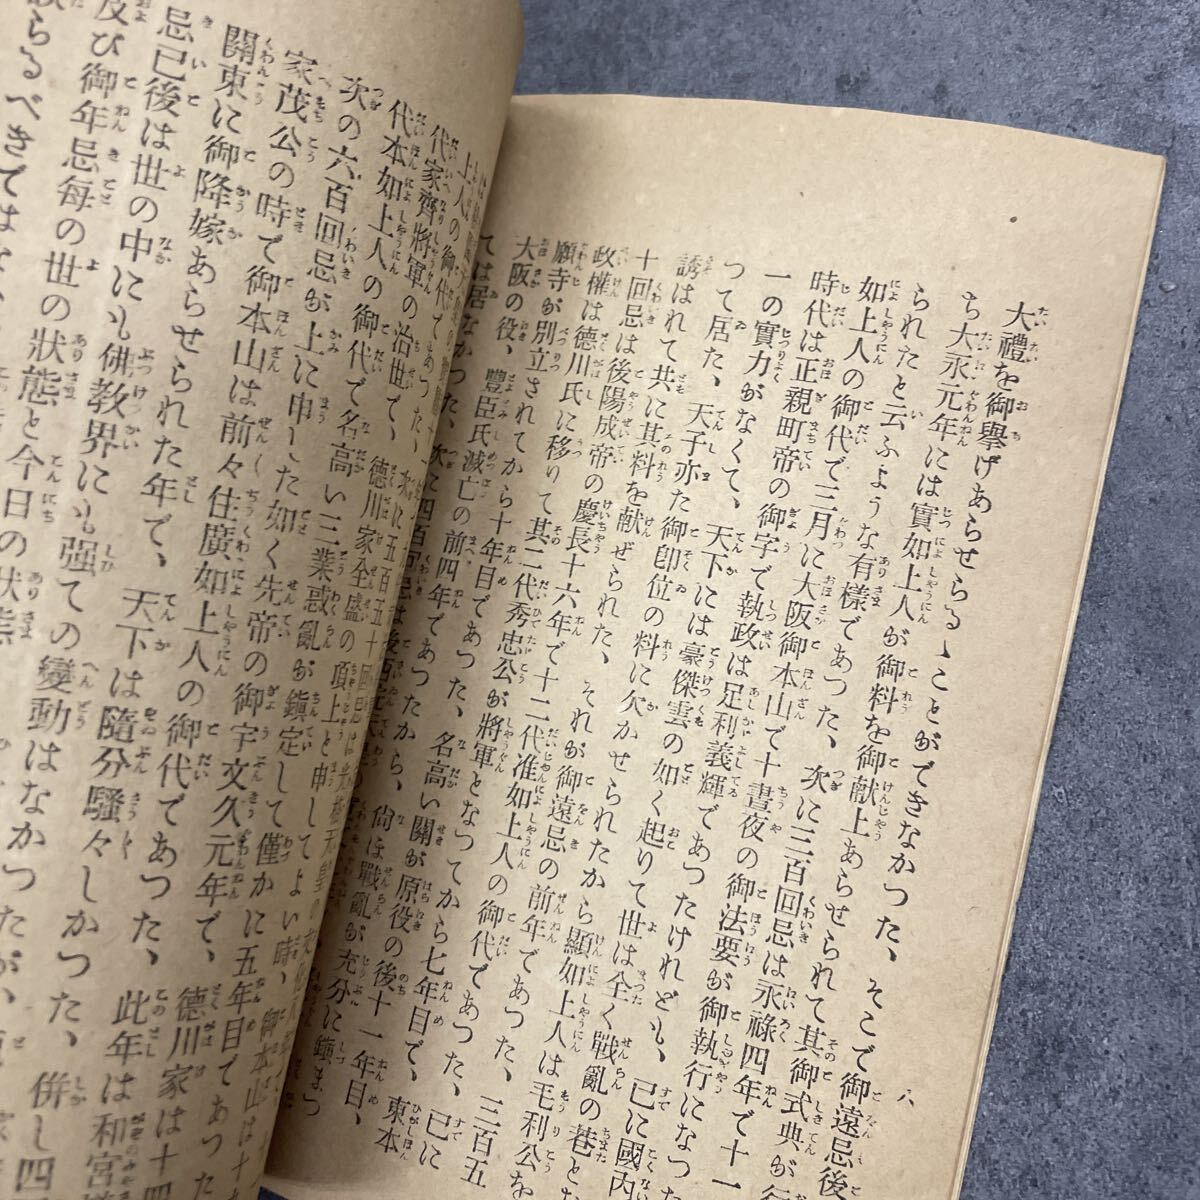 八
大禮を御擧げあらせらるゝことができなかつた、そこで御遠忌後
ち大永元年には實如上人が御料を御献上あらせられて其御式典が行
られたと云ふような有樣であつた、次に三百回忌は永祿四年で十一
如上人の御代で三月に大阪御本山で十晝夜の御法要が御執行になつた
時代は正親町帝の御宇で執政は足利義輝であつたけれども、已に國内
一の實力がなくて、天下には豪傑雲の如く起りて世は全く戰亂の巷と
つて居た、天子亦た御卽位の料に欠かせられたから顯如上人は毛利公
誘はれて共に其料を献ぜられた、それが御遠忌の前年であつた、三百五
十回忌は後陽成帝の慶長十六年で十二代准如上人の御代であつた、已に
政權は德川氏に移りて其二代秀忠公が將軍となつてから七年目で、東本
願寺が別立されてから十年目であつた、名高い關が原役の後十一年目、
大阪の役、豐臣氏滅亡の前四年であつたから、尙ほ戰亂が充分に鎭まつ
ては居なかつた、次に四百回忌は後
上人の御代であつた、次に五百五十回忌は光格天皇の
代家齊將軍の治世で、德川家全盛の頂上と申してよい時、御本山は十
代本如上人の御代で名高い三業惑亂が鎭定して僅かに五年目であつた
次の六百回忌が上に申した如く先帝の御宇文久元年で、德川家は十四
家茂公の時で御本山は前々住廣如上人の御代であつた、此年は和宮樣
關東に御降嫁あらせられた年で、天下は隨分騷々しかつた、併し四
忌已後は世の中にも佛教界にも强ての變動はなかつたが、
及び御年忌每の世の狀態と今日の狀態
らるべきではな